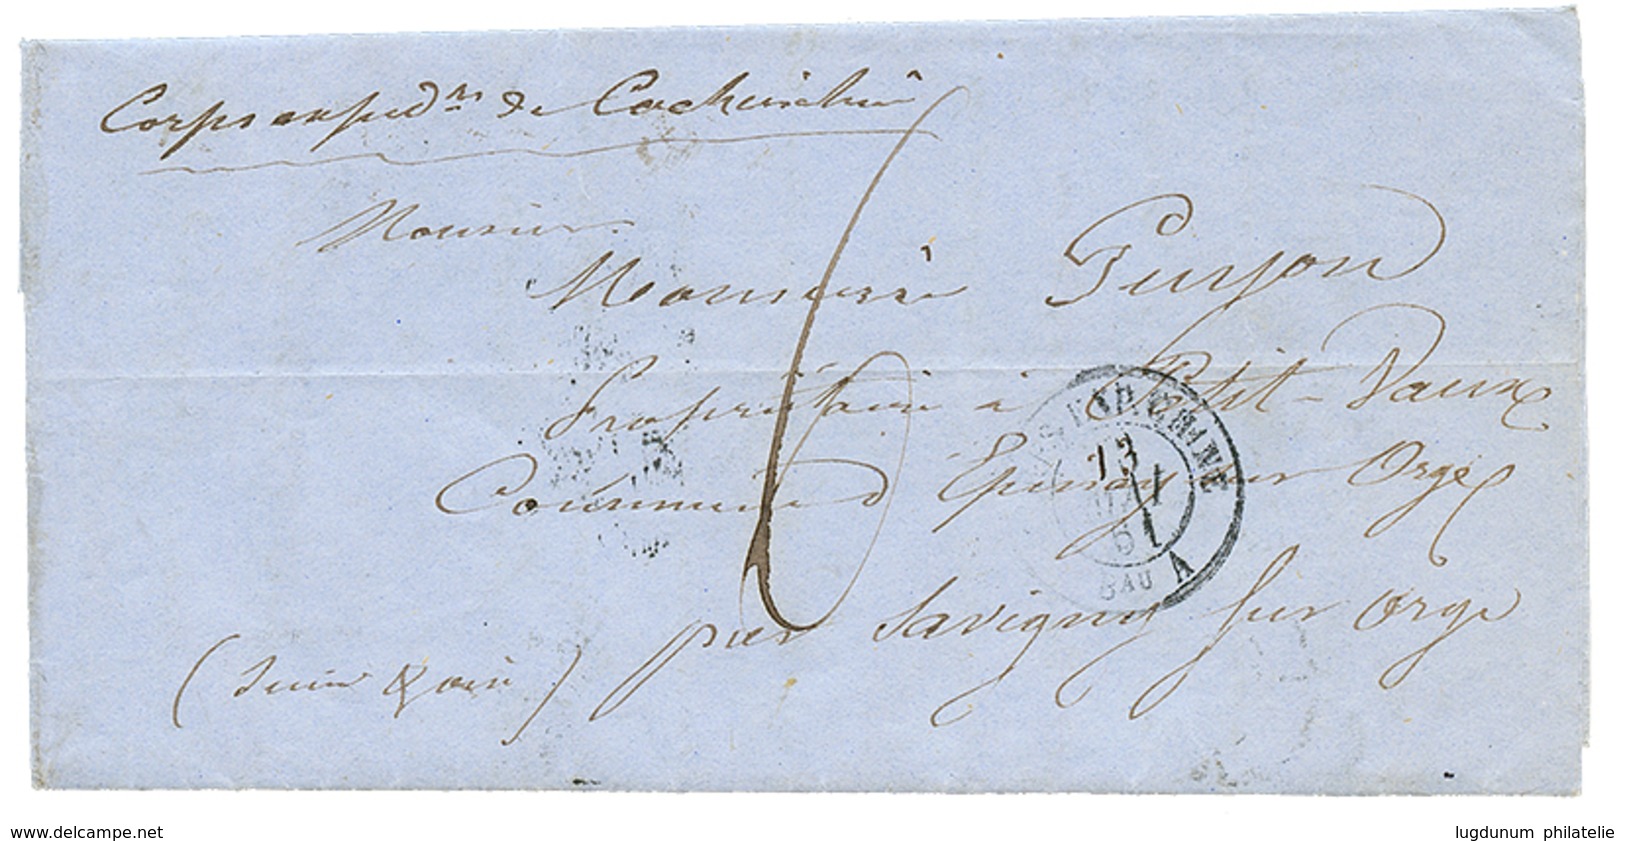 Corps expéd.re de Cochinchine
Monsieur
Monsieur Guyon
Propriétaire à Petit-Vaux
Commune d'Epinay sur Orge
par Savigny sur Orge
(Seine & Oise)
6
EXP. CHINE
13
61
BAU A
www.delcampe.net
lugdunum philatelie